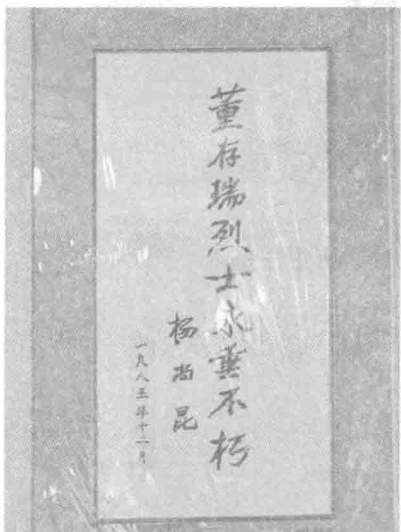 董存瑞烈士永垂不朽
杨尚昆
一九八五年十二月